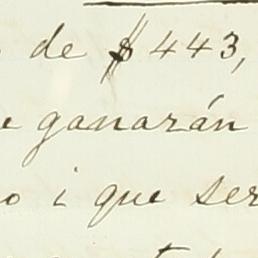 de $443,
ganarán
o i que ser